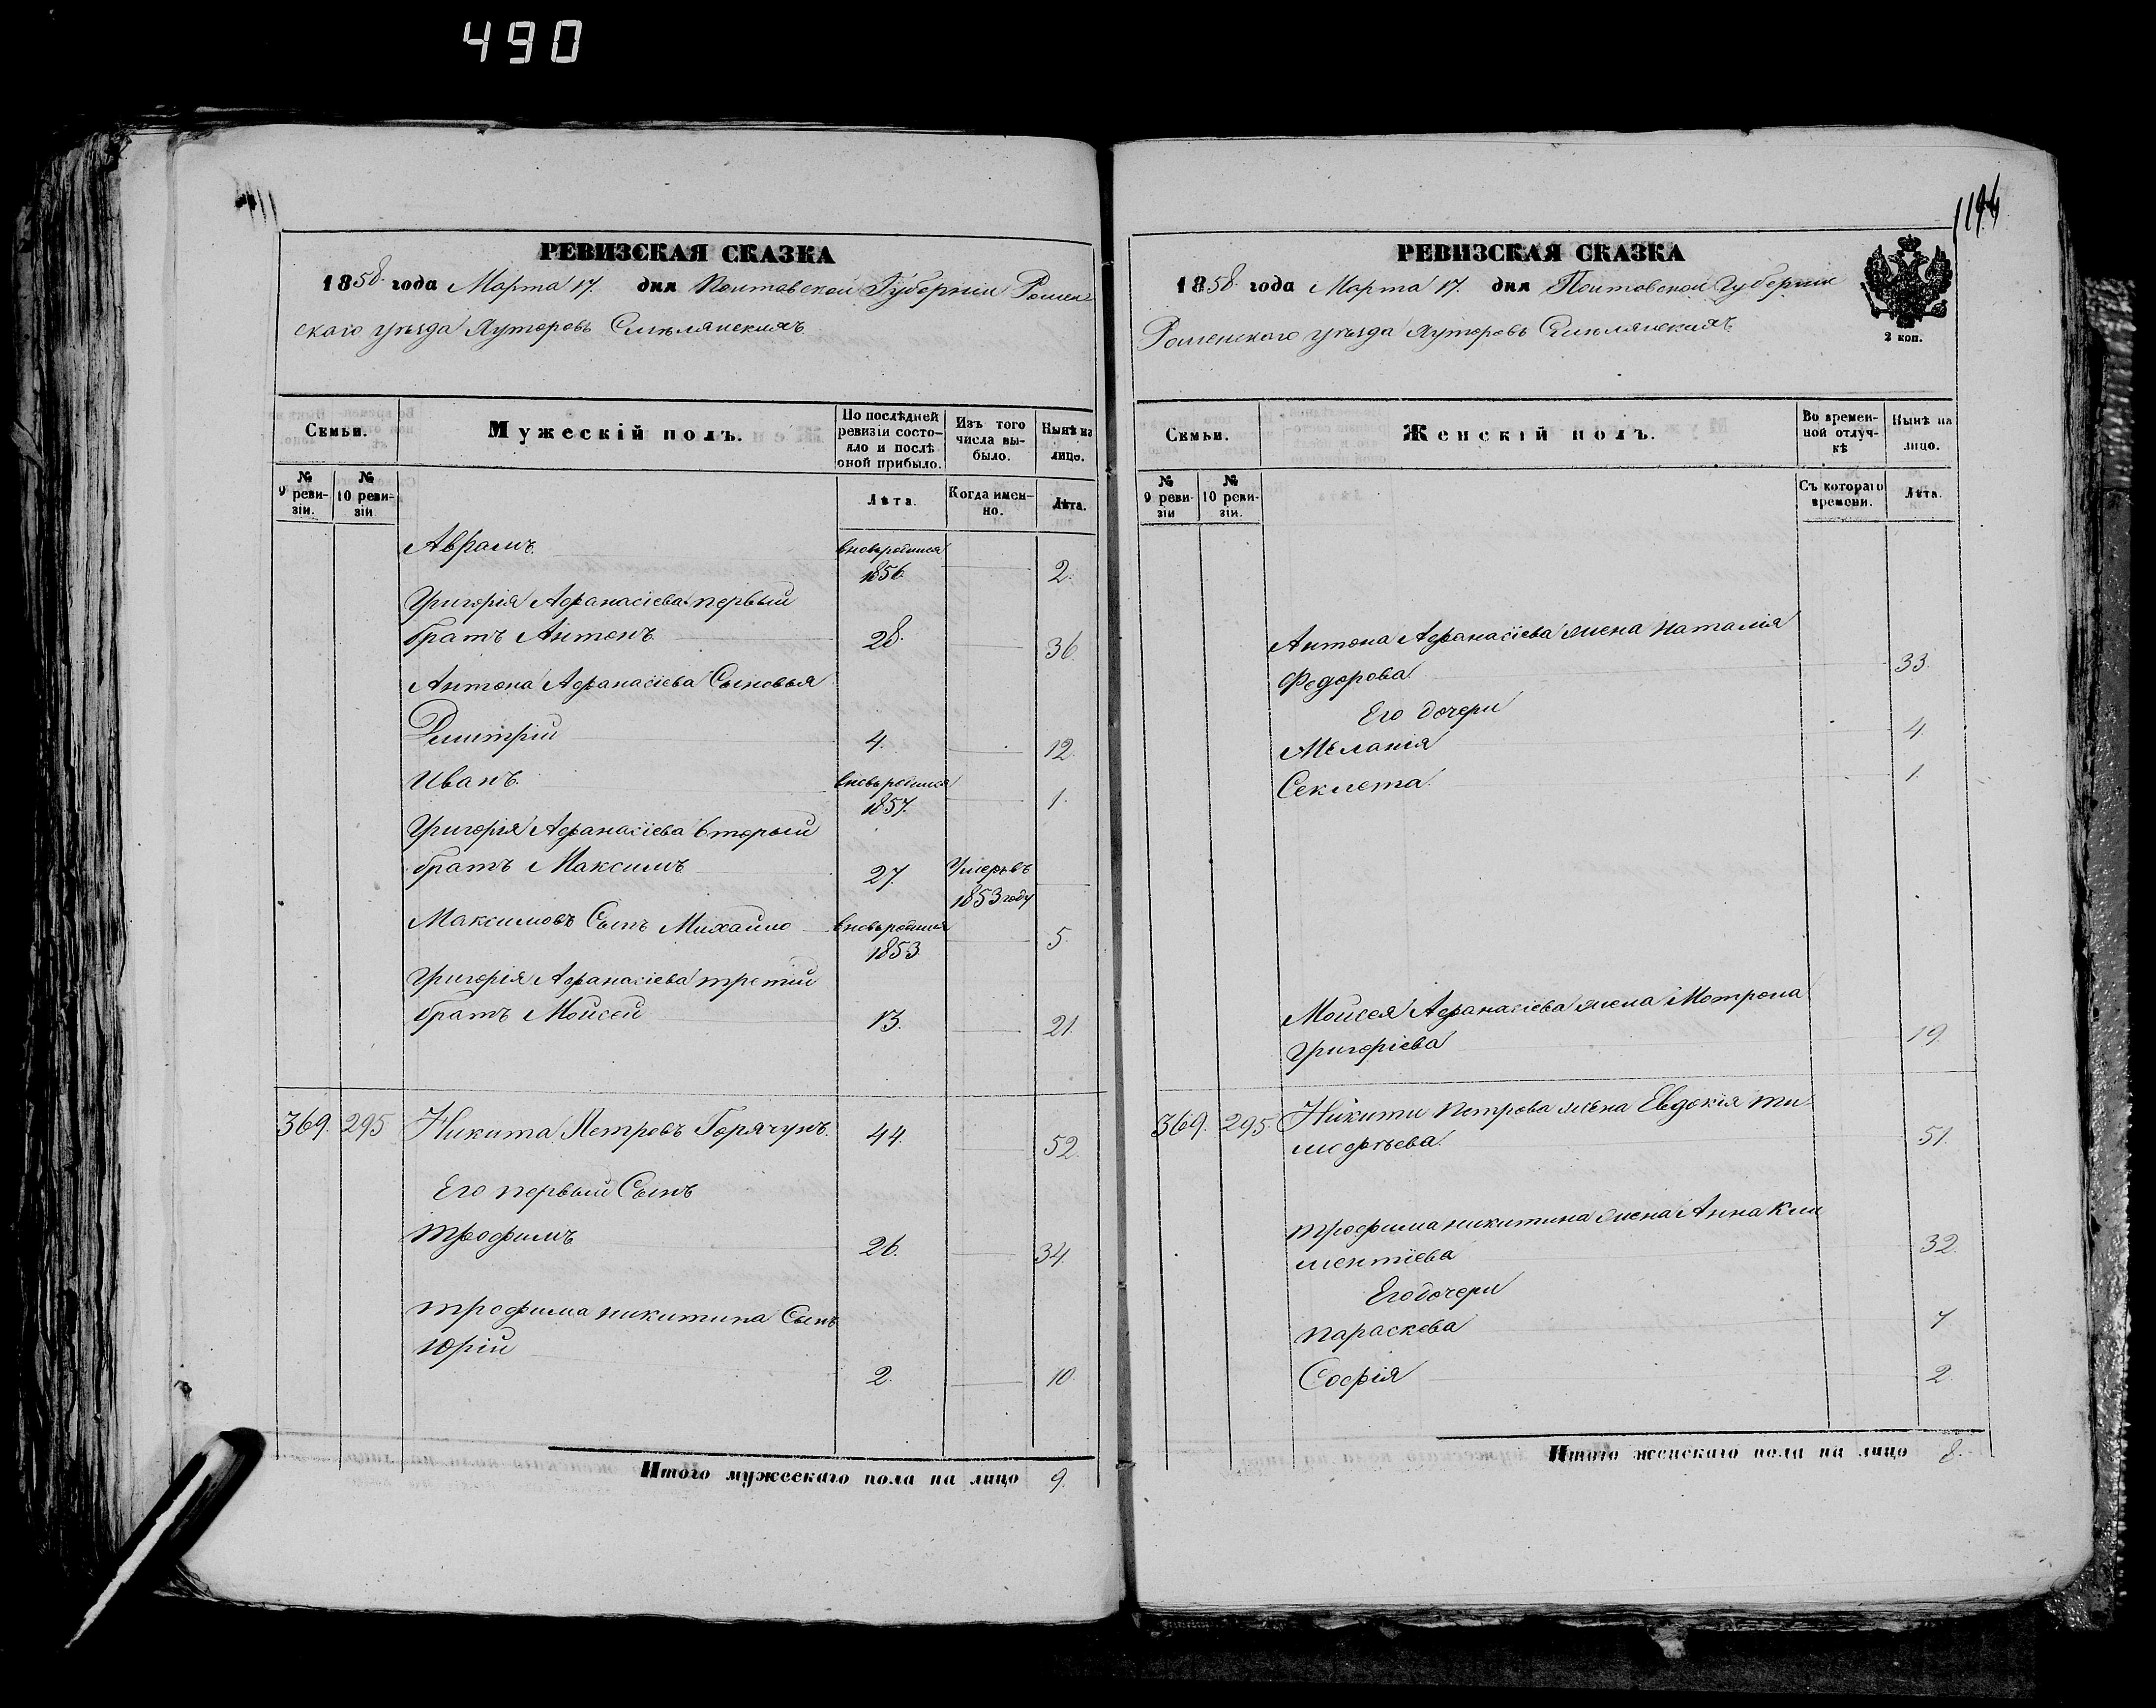 490
РЕВИЗСКАЯ СКАЗКА
1858. года Марта 17. дня Полтавской Губерніи Ромен
скаго уѣзда Хуторовъ Смѣлянскихъ
Семьи.
Мужескій полъ.
По послѣдней
ревизіи состо-
яло и послѣ
оной прибыло.
Изъ того
числа вы-
было.
Нынѣ на
лицо.
№
9 реви-
зіи.
№
10 реви-
зіи
Лѣта.
Когда имен-
но.
Лѣта.
Аврамъ вновьродился
1856. 2.
Григорія Афанасіева первый
братъ Антонъ 28. 36.
Антона Афанасіева Сыновья
Димитрій 4. 12.
Иванъ. вновьродился
1857. 1.
Григорія Афанасіева вторый
братъ Максимъ 27. Умеръ въ
1853 году
Максимовъ Сынъ Михайло вновьродился
1853. 5.
Григорія Афанасіева третій
братъ Мойсей 13. 21.
369. 295 Никита Петровъ Горячунъ. 44. 52.
Его первый Сынъ
Трофимъ 26. 34.
Трофима Никитина Сынъ
Юрій 2. 10.
Итого мужескаго пола на лицо 9.
РЕВИЗСКАЯ СКАЗКА
1858. года Марта 17. дня Полтавской Губерніи
Роменского уѣзда Хуторовъ Смѣлянскихъ
2 коп.
Семьи.
Женскій полъ.
Во времен-
ной отлуч-
кѣ
Нынѣ на
лицо.
№
9 реви-
зіи
№
10 реви-
зіи.
Съ котораго
времени.
Лѣта.
Антона Афанасіева жена Наталія
Федорова 33.
Его дочери
Меланія 4
Секлета. 1.
Мойсея Афанасіева жена Мотрона
Григоріева 19.
369. 295. Никиты Петрова жена Евдокія Ти
мофѣева. 51.
Трофима Никитина жена Анна Кли
ментіева 32.
Его дочери
Параскева 7
Софія 2.
Итого женскаго пола на лицо 8.